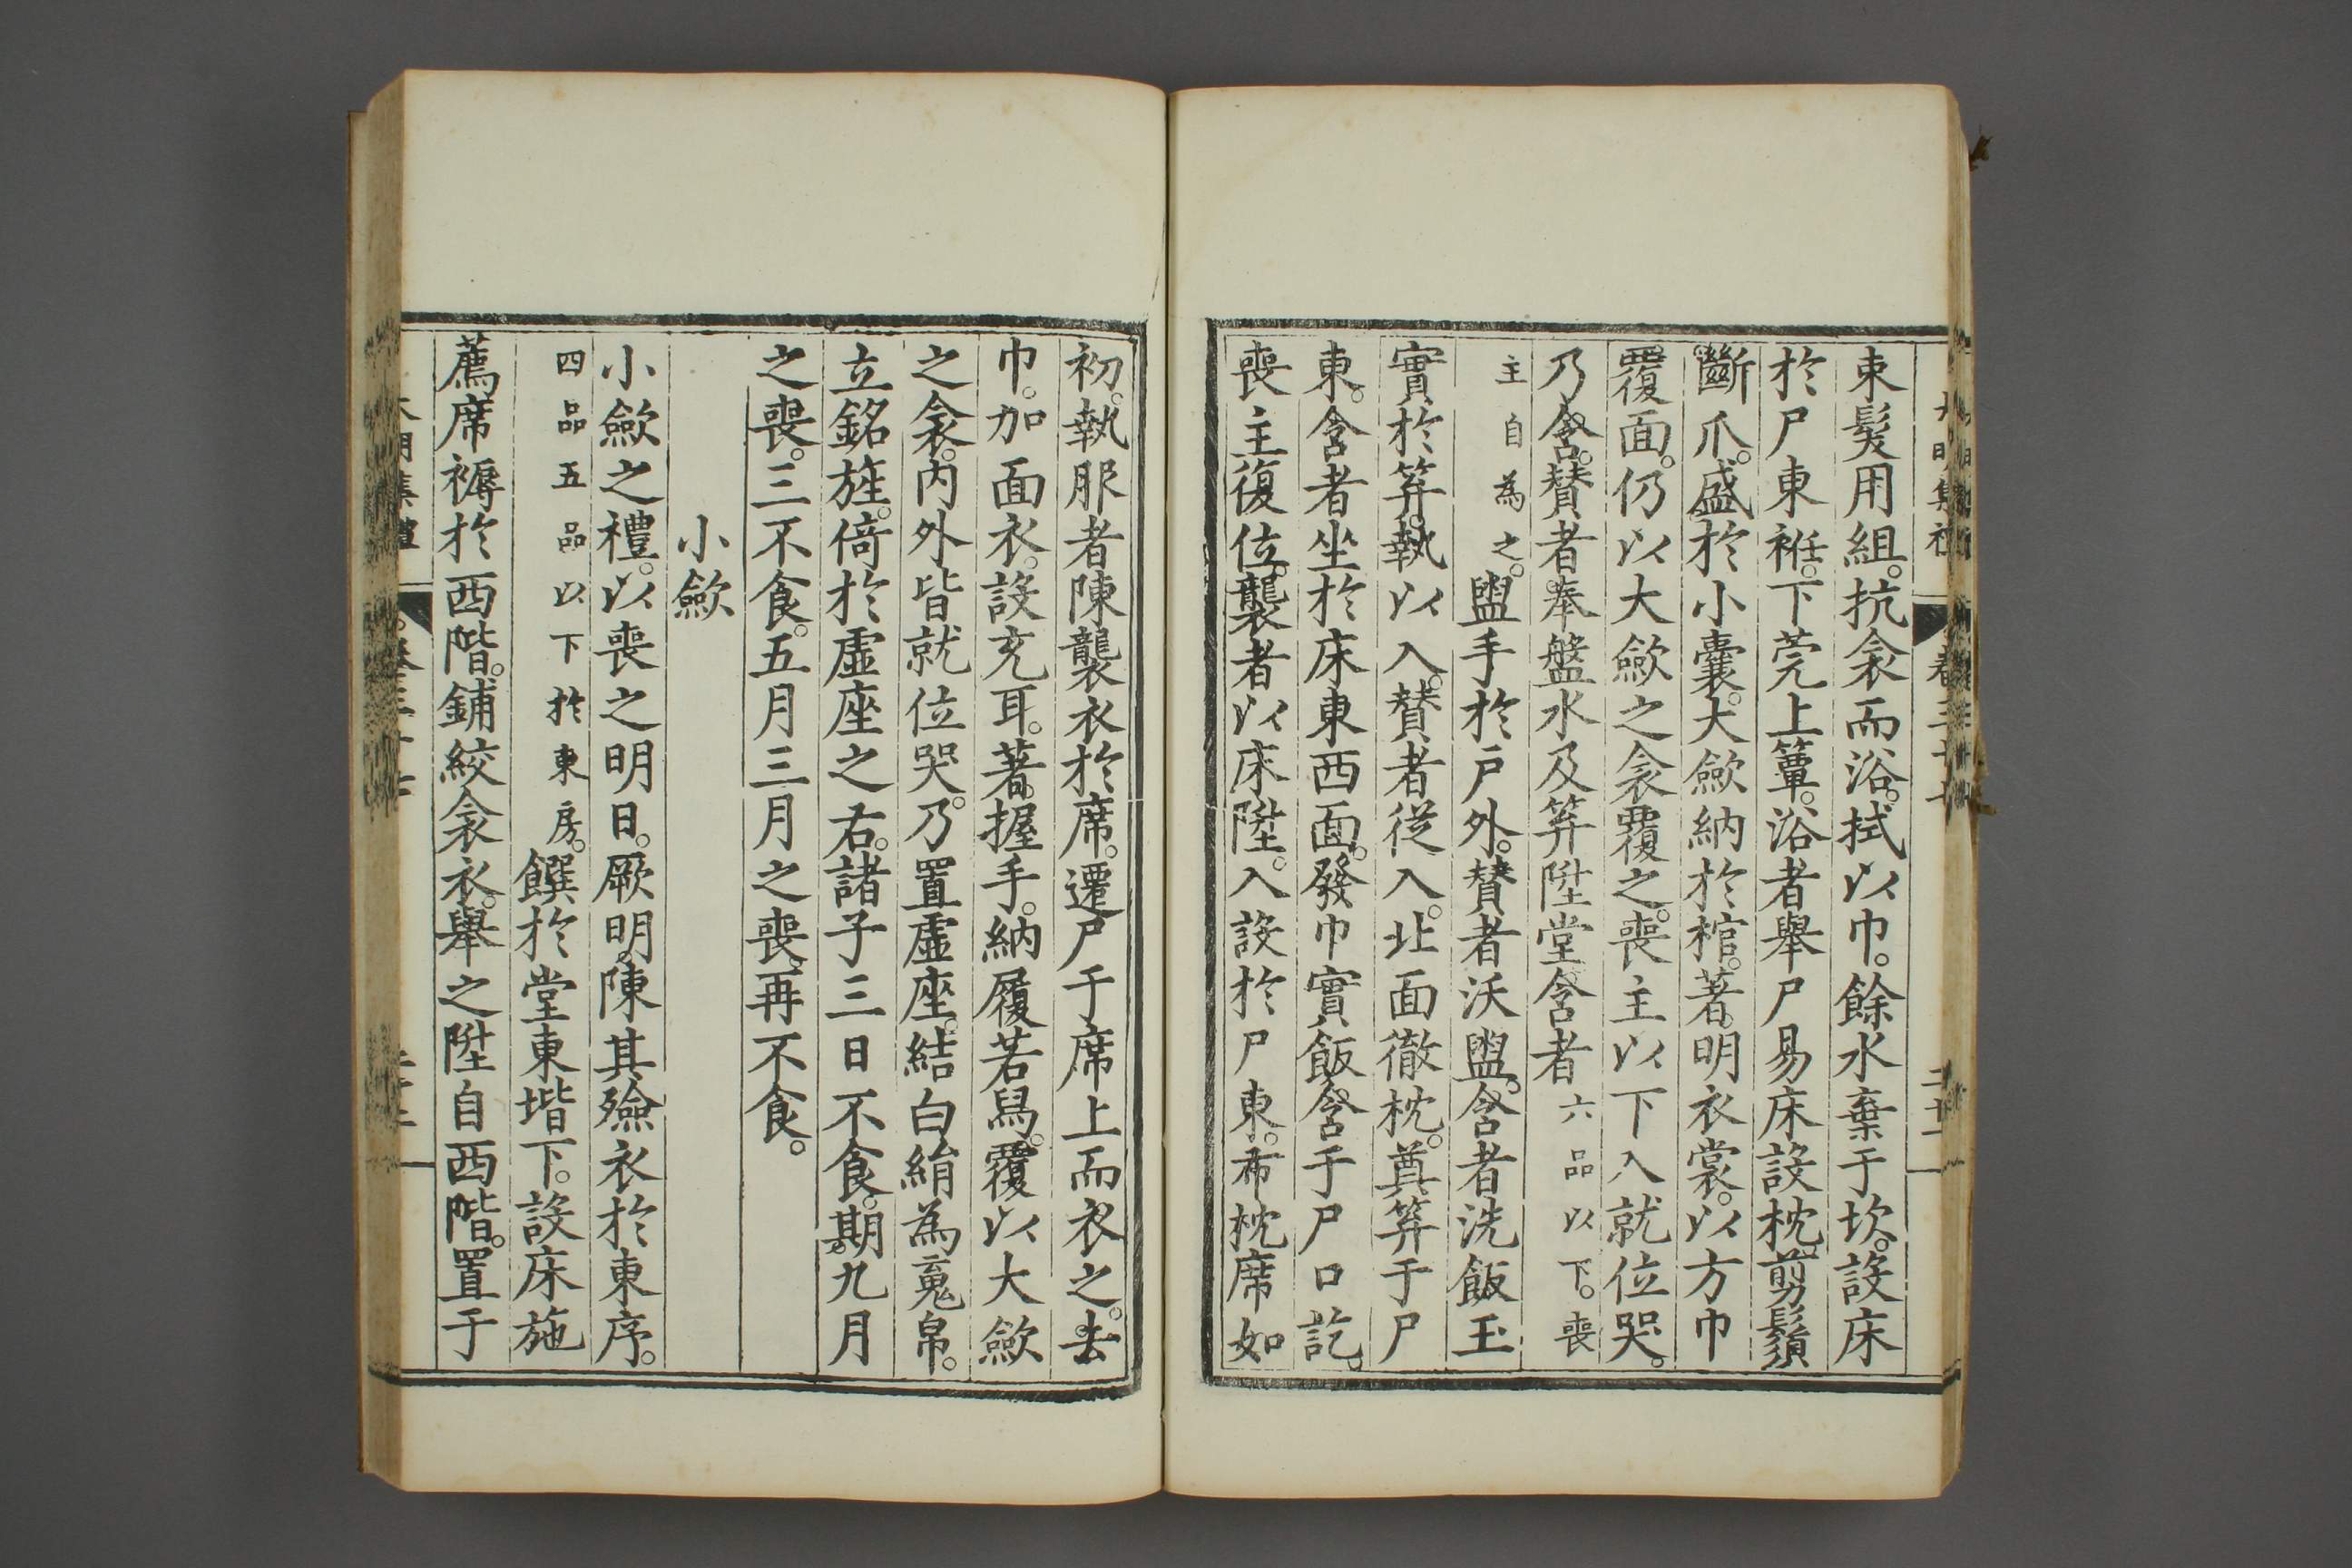 大明集禮 卷三十七 二十一
束髮用組。抗衾而浴。拭以巾。餘水棄于坎。設床
於尸東袵。下莞上簟。浴者舉尸易床設枕。剪鬚
斷爪。盛於小囊。大歛納於棺。著明衣裳。以方巾
覆面。仍以大歛之衾覆之。喪主以下入就位哭。
乃含。賛者奉盤水及筭陞堂含者六品以下。喪
主自為之。盥手於戶外。賛者沃盥。含者洗飯玉
實於筭。執以入。賛者從入。北面徹枕。奠筭于尸
東。含者坐於床東西面。發巾實飯含于尸口訖。
喪主復位。襲者以床陞。入設於尸東。布枕席如
初。執服者陳襲衣於席。遷尸于席上而衣之。去
巾。加面衣。設充耳。著握手。納履若舄。覆以大歛
之衾。內外皆就位哭。乃置虛座。結白絹為䰟帛。
立銘旌。倚於虛座之右。諸子三日不食。期。九月
之喪。三不食。五月三月之喪。再不食。
小歛
小歛之禮。以喪之明日。厥明。陳其殮衣於東序。
四品五品以下於東房。饌於堂東堦下。設床施
薦席褥於西階。鋪絞衾衣。舉之陞自西階。置于
大明集禮 卷三十七 二十二